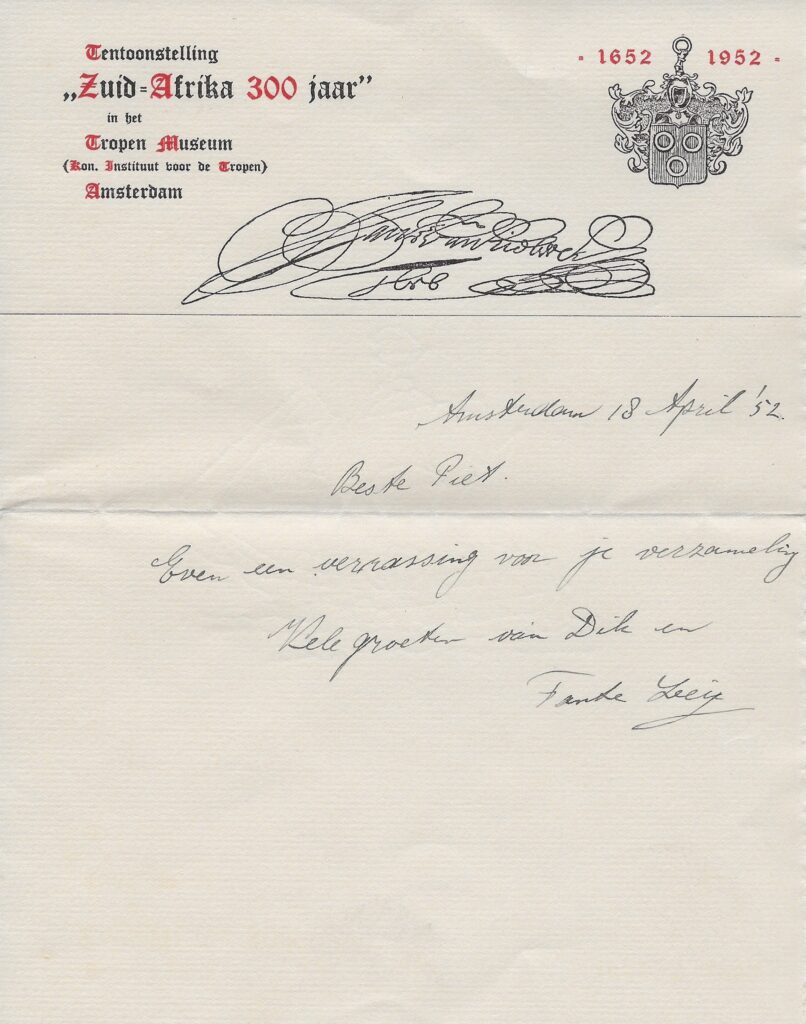 Tentoonstelling
„Zuid=Afrika 300 jaar”
in het
Tropen Museum
(Kon. Instituut voor de Tropen)
Amsterdam
· 1652 1952 ·
Amsterdam 18 April '52.
Beste Piet.
Even een verrassing voor je verzameling
Vele groeten van Dik en
Tante